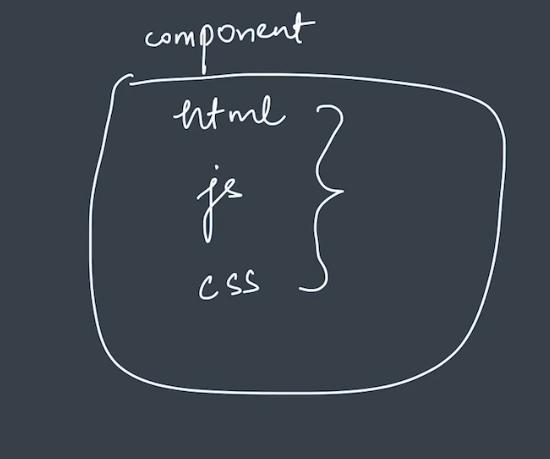 component
html
js
css